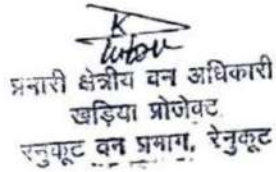 प्रभारी क्षेत्रीय वन अधिकारी
खड़िया प्रोजेक्ट
रेनुकूट वन प्रभाग, रेनुकूट